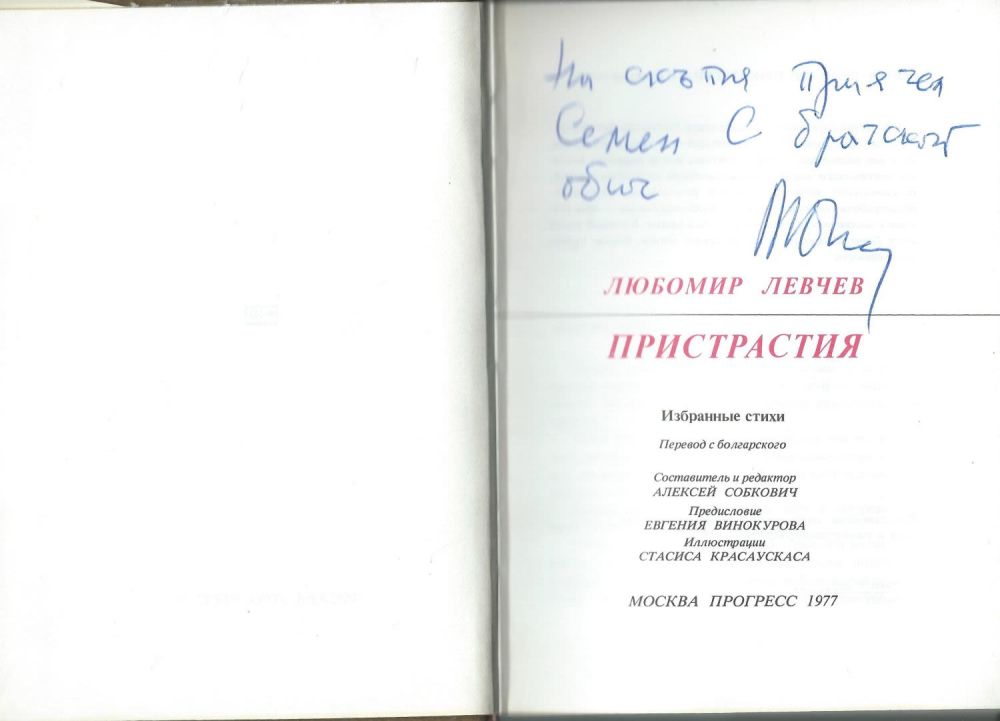 На скъпия приятел
Семен С братската
обич
ЛЮБОМИР ЛЕВЧЕВ
ПРИСТРАСТИЯ
Избранные стихи
Перевод с болгарского
Составитель и редактор
АЛЕКСЕЙ СОБКОВИЧ
Предисловие
ЕВГЕНИЯ ВИНОКУРОВА
Иллюстрации
СТАСИСА КРАСАУСКАСА
МОСКВА ПРОГРЕСС 1977